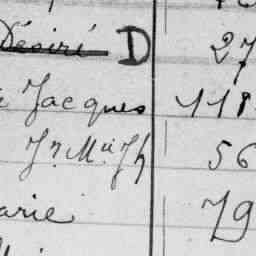 Désiré D 27
Jacques 118
Jn Mie Jh 56
arie 79